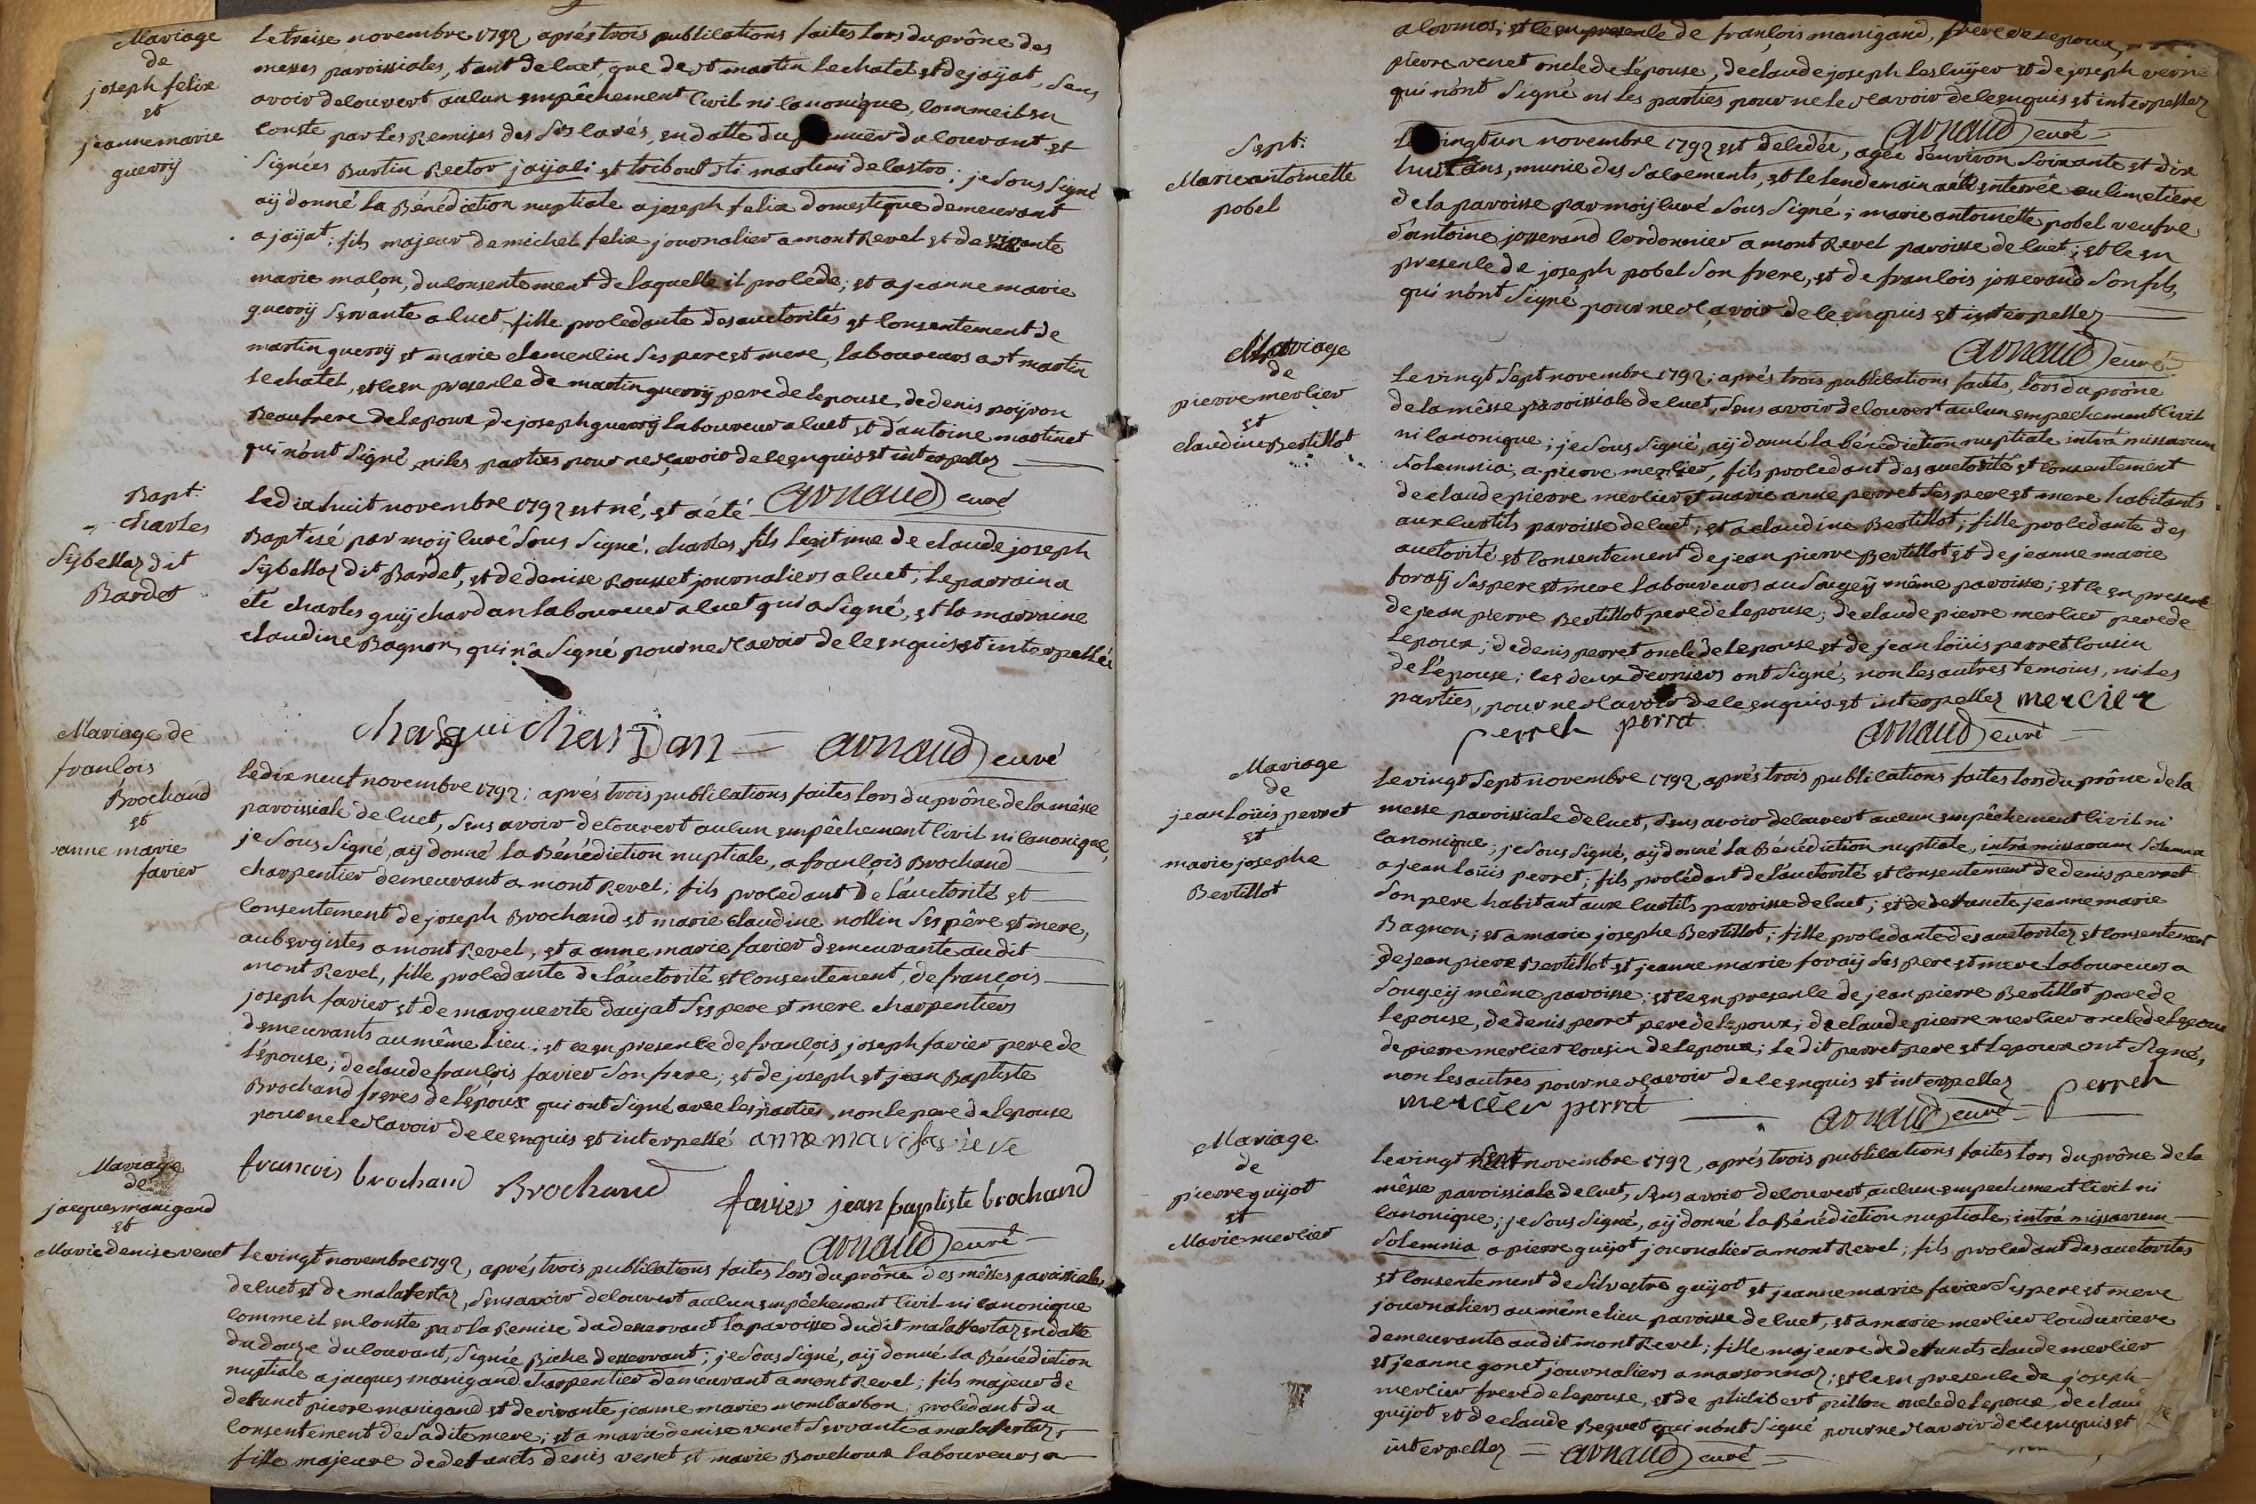 Mariage
de
joseph felix
et
jeanne marie
guerrÿ
Le treise novembre 1792, aprés trois publications faites lors du prône des
messes paroissiales, tant de Cuet, que de st martin Lechatel et de jaÿat, sans
avoir decouvert aucun empêchement Civil ni Canonique, Comme il en
Conste par les Remises des srs Curés, en datte du du Courant et
signées Burtin Rector jaÿati et tribout sti martini de Castro; je sous signé
aÿ donné la Bénédiction nuptiale a joseph felix domestique demeurant
a jaÿat; fils majeur de michel felix journalier a montRevel et de vivante
marie malon, du consentement de laquelle il procéde; et a jeanne marie
guerrÿ servante a Cuet, fille procedante des auctorités et Consentement de
martin guerrÿ et marie clemencin ses pere et mere, laboureurs a st martin
lechatel, et ce en presence de martin guerrÿ pere de lepouse, de denis poÿron
Beaufrere de lepoux, de joseph guerrÿ laboureur a Cuet et d'antoine martinet
qui n'ont signé ni les parties pour ne sçavoir de ce enquis et interpellez
arnaud curé
Bapt:
charles
Sÿbellaz dit
Bardet
Le dix huit novembre 1792 est né, et a été
Baptisé par moÿ Curé sous signé, charles, fils legitime de claude joseph
Sÿbellaz dit Bardet, et de denise Rousset journaliers a Cuet; le parrain a
été charles guÿchardan laboureur a Cuet qui a signé, et la marraine
claudine Bagnon, qui n'a signé pour ne sçavoir de ce enquis et interpellée
chaRguichar Dan = arnaud curé
Mariage de
francois
Brochand
et
anne marie
favier
Le dix neuf novembre 1792; aprés trois publications faites lors du prône de la mêsse
paroissiale de Cuet, sans avoir decouvert aucun empêchement Civil ni Canonique,
je sous signé, aÿ donné la Bénédiction nuptiale, a françois Brochand
charpentier demeurant a montRevel; fils procedant de l'auctorité et
Consentement de joseph Brochand et marie claudine nollin ses pêre et mere,
aubergistes a montRevel, et a anne marie favier demeurante audit
montRevel, fille procedante de l'auctorité et Consentement, de françois
joseph favier et de marguerite daujat ses pere et mere charpentiers
demeurants au même lieu; et ce en presence de françois joseph favier pere de
l'épouse; de claude françois favier son frere; et de joseph et jean Baptiste
Brochand freres de l'époux qui ont signé avec les parties, non le pere de lepouse
pour ne le sçavoir de ce enquis et interpellé anne mari fav
francois brochand Brochand favier jean baptiste brochand
arnaud curé
Mariage
de
jacques manigand
et
Marie denise venet
Le vingt novembre 1792, aprés trois publications faites lors du prône des mêsses paroissiales
de Cuet et de malafertaz, sans avoir decouvert aucun empêchement Civil ni Canonique
Comme il en Conste par la Remise du desservant la paroisse dudit malaffertaz en datte
du douze du Courant, signée Biche desservant; je sous signé, aÿ donné la Bénédiction
nuptiale a jacques manigand charpentier demeurant a montRevel; fils majeur de
defunct pierre manigand et de vivante jeanne marie mombarbon, procedant du
Consentement de sadite mere; et a marie denise venet servante a malafertaz,
fille majeure de defuncts denis venet et marie Bouchoux laboureurs a
; et ce en presence de françois manigand, frere de lepoux,
pierre venet oncle de l'épouse, de claude joseph lescuÿer et de joseph
qui n'ont signé ni les parties pour ne le sçavoir de ce enquis et interpellez
arnaud curé
Sept:
Marie antoinette
pobel
Le vingt un novembre 1792 est décédée, agée d'environ soixante et dix
huit ans, munie des sacrements, et le lendemain a été enterrée au Cimetière
de la paroisse par moÿ Curé sous signé; marie antoinette pobel veufve
d'antoine josserand Cordonnier a montRevel paroisse de Cuet; et ce en
presence de joseph pobel son frere, et de francois josserand son fils,
qui n'ont signé pour ne sçavoir de ce enquis et interpellez
arnaud curé
Mariage
de
pierre mercier
et
claudine Bertillot
Le vingt sept novembre 1792; aprés trois publications faites, lors du prône
de la mêsse paroissiale de Cuet, sans avoir decouvert aucun empechement Civil
ni Canonique; je sous signé, aÿ donné la bénédiction nuptiale intrá missarum
solemnia, a pierre mercier, fils procedant des auctorité et Consentement
de claude pierre mercier et marie anne perret ses pere et mere habitants
aux Curtils paroisse de Cuet; et a claudine Bertillot; fille procedante des
auctorité et Consentement de jean pierre Bertillot et de jeanne marie
foraÿ ses pere et mere laboureurs au Sougeÿ même paroisse; et ce en presence
de jean pierre Bertillot pere de lepouse; de claude pierre mercier pere de
lepoux; de denis perret oncle de lepouse et de jean loüis perret Cousin
de l'épouse; les deux derniers ont signé, non les autres temoins, ni les
parties, pour ne sçavoir de ce enquis et interpellez mercier
perret perret arnaud curé
Mariage
de
jean loüis perret
et
marie josephe
Bertillot
Le vingt sept novembre 1792, aprés trois publications faites lors du prône de la
messe paroissiale de Cuet, sans avoir decouvert aucun empêchement Civil ni
Canonique; je sous signé, aÿ donné la Bénédiction nuptiale, intrá missarum solemnia
a jean loüis perret, fils procédant de l'auctorité et Consentement de denis perret
son pere habitant aux Curtils paroisse de Cuet, et de defuncte jeanne marie
Bagnon; et a marie josephe Bertillot; fille procedante des auctoritez et Consentement
de jean pierre Bertillot et jeanne marie foraÿ ses pere et mere laboureurs a
Sougeÿ même paroisse; et ce en presence de jean pierre Bertillot pere de
lepouse, de denis perret pere de lepoux; de claude pierre mercier oncle de lepoux
de pierre mercier Cousin de lepoux; le dit perret pere et lepoux ont signé,
non les autres pour ne sçavoir de ce enquis et interpellez perret
mercier perret arnaud curé
Mariage
de
pierre guÿot
et
Marie mercier
Le vingt sept novembre 1792, aprés trois publications faites lors du prône de la
mêsse paroissiale de Cuet, sans avoir decouvert aucun empechement Civil ni
Canonique; je sous signé, aÿ donné la Bénédiction nuptiale, intrá missarum
solemnia a pierre guÿot journalier a montRevel; fils procedant des auctorités
et Consentement de Silvestre guÿot et jeanne marie favier ses pere et mere
journaliers au même lieu paroisse de Cuet, et a marie mercier Couduriere
demeurante audit montRevel; fille majeure de defuncts claude mercier
et jeanne gonet journaliers a marsonnaz; et ce en presence de joseph
mercier frere de lepouse, et de philibert pillon oncle de lepoux, de
guÿot et de claude Beguet qui n'ont signé pour ne sçavoir de ce enquis et
interpellez = arnaud curé